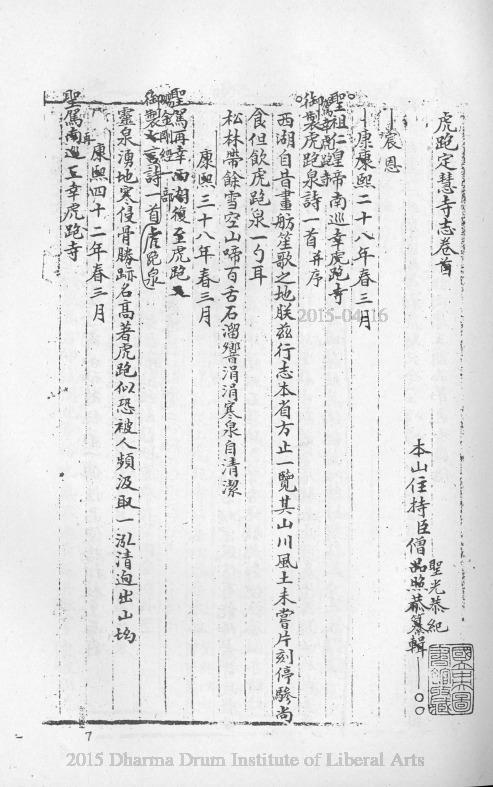 虎跑定慧寺志卷首
本山住持臣僧品照恭纂輯
聖光恭紀
宸恩
康熙二十八年春三月
聖祖仁皇帝南巡幸虎跑寺
御製虎跑泉詩一首并序
西湖自昔畫舫笙歌之地朕茲行志本省方止一覽其山川風土未嘗片刻停驂尚
食但飲虎跑泉一勺耳
松林帶餘雪空山啼百舌石溜響涓涓寒泉自清潔
康熙三十八年春三月
聖駕再幸西湖復至虎跑
御製七言詩一首虎跑泉
金剛經一部
靈泉湧地寒侵骨勝跡名高著虎跑似恐被人頻汲取一泓清迥出山坳
康熙四十二年春三月
聖駕南巡再幸虎跑寺
7
2015-04-16
2015 Dharma Drum Institute of Liberal Arts